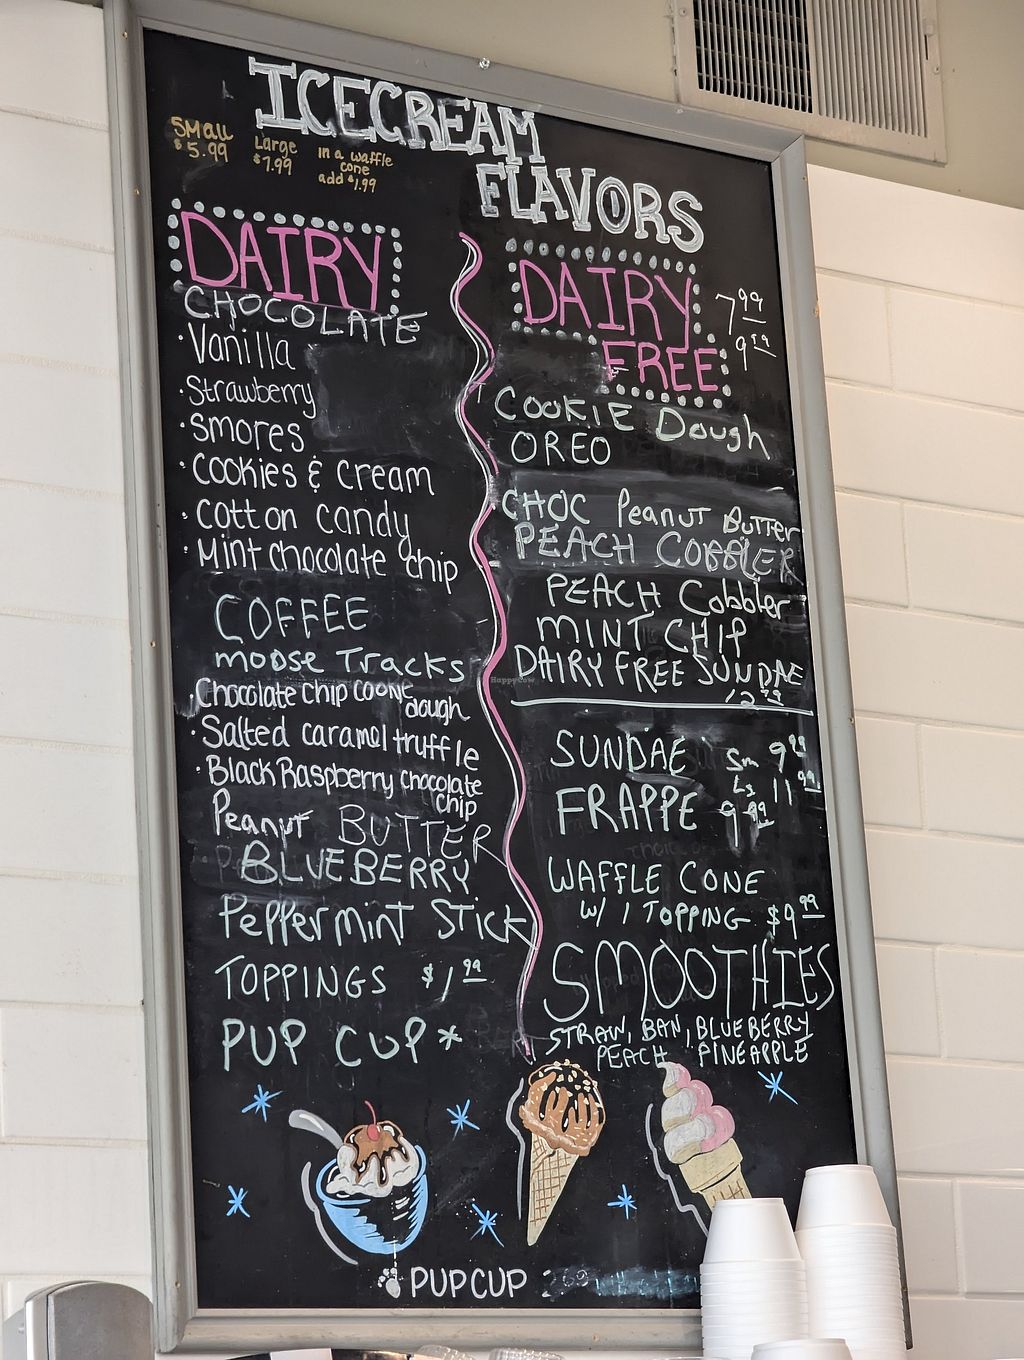 ICECREAM
FLAVORS
Small
$5.99
Large
$7.99
in a waffle
cone
add $1.99
DAIRY
CHOCOLATE
·Vanilla
·Strawberry
·Smores
·Cookies & Cream
·Cotton Candy
·Mint chocolate chip
COFFEE
moose Tracks
·Chocolate chip cookie
dough
·Salted caramel truffle
·Black Raspberry chocolate
chip
Peanut BUTTER
BLUEBERRY
Peppermint Stick
TOPPINGS $1.99
PUP CUP*
DAIRY
FREE
7.99
COOKIE Dough
OREO
CHOC Peanut Butter
PEACH COBBLER
PEACH Cobbler
MINT CHIP
DAIRY FREE SUNDAE
SUNDAE Sm 9.99
Lg 11.99
FRAPPE 9.99
WAFFLE CONE
W/ 1 TOPPING $9.99
SMOOTHIES
STRAW, BAN, BLUEBERRY
PEACH, PINEAPPLE
PUPCUP
HappyCow